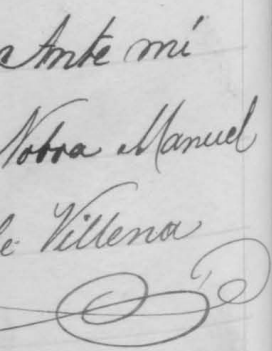 Ante mí
Notra Manuel
de Villena